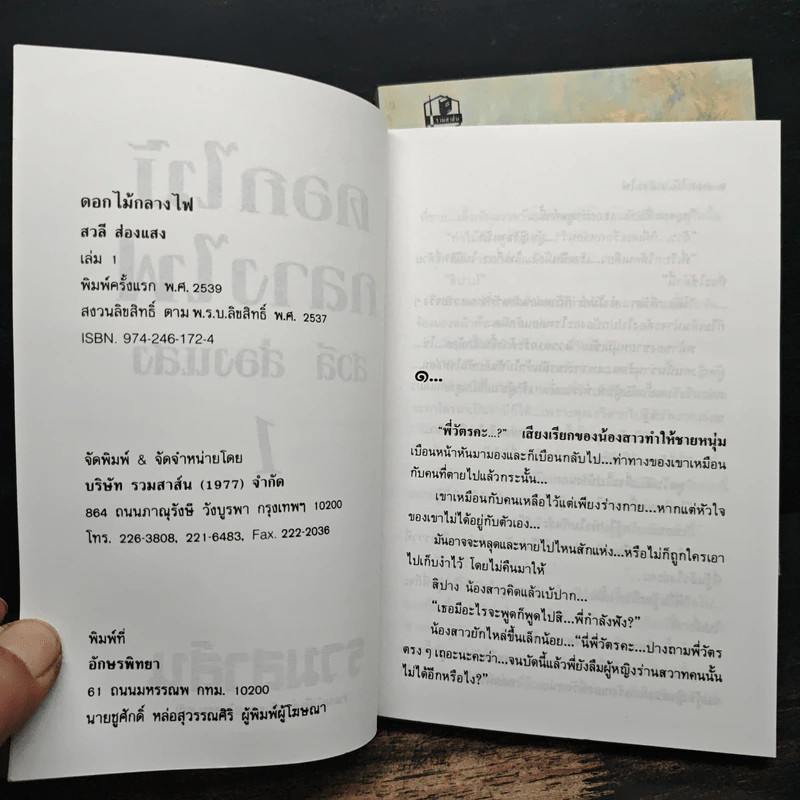 ดอกไม้กลางไฟ
สวลี ส่องแสง
เล่ม 1
พิมพ์ครั้งแรก พ.ศ. 2539
สงวนลิขสิทธิ์ ตาม พ.ร.บ.ลิขสิทธิ์ พ.ศ. 2537
ISBN. 974-246-172-4
จัดพิมพ์ & จัดจำหน่ายโดย
บริษัท รวมสาส์น (1977) จำกัด
864 ถนนภาณุรังษี วังบูรพา กรุงเทพฯ 10200
โทร. 226-3808, 221-6483, Fax. 222-2036
พิมพ์ที่
อักษรพิทยา
61 ถนนมหรรณพ กทม. 10200
นายชูศักดิ์ หล่อสุวรรณศิริ ผู้พิมพ์ผู้โฆษณา
รวมสาส์น
๑...
"พี่วัตรคะ...?" เสียงเรียกของน้องสาวทำให้ชายหนุ่ม
เบือนหน้าหันมามองและก็เบือนกลับไป...ท่าทางของเขาเหมือน
กับคนที่ตายไปแล้วกระนั้น...
เขาเหมือนกับคนเหลือไว้แต่เพียงร่างกาย...หากแต่หัวใจ
ของเขาไม่ได้อยู่กับตัวเอง...
มันอาจจะหลุดและหายไปไหนสักแห่ง...หรือไม่ก็ถูกใครเอา
ไปเก็บงำไว้ โดยไม่คืนมาให้
สิปาง น้องสาวคิดแล้วเบ้ปาก...
"เธอมีอะไรจะพูดก็พูดไปสิ...พี่กำลังฟัง?"
น้องสาวยักไหล่ขึ้นเล็กน้อย..."นี่พี่วัตรคะ...ปางถามพี่วัตร
ตรง ๆ เถอะนะคะว่า...จนบัดนี้แล้วพี่ยังลืมผู้หญิงร่านสวาทคนนั้น
ไม่ได้อีกหรือไง?"